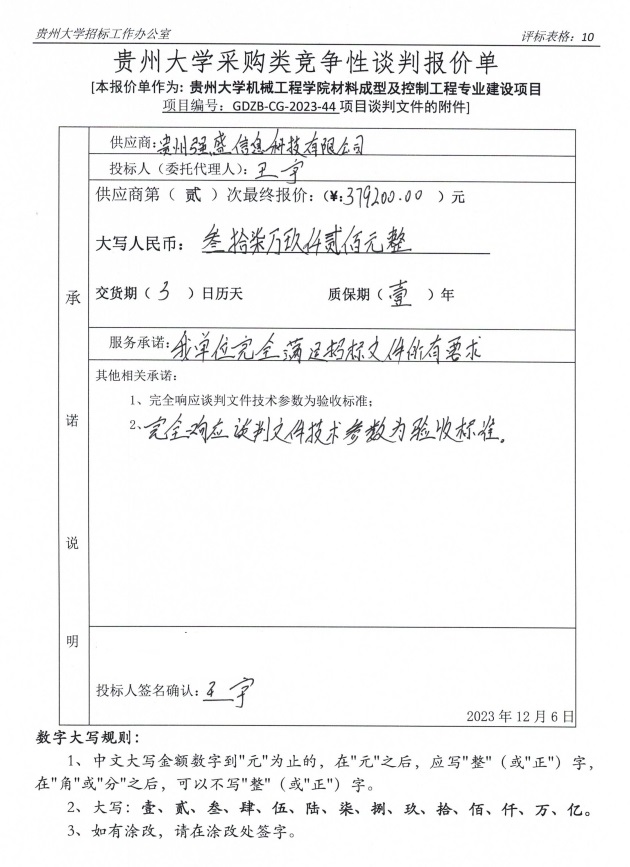 贵州大学招标工作办公室 评标表格：10
贵州大学采购类竞争性谈判报价单
[本报价单作为: 贵州大学机械工程学院材料成型及控制工程专业建设项目
项目编号：GDZB-CG-2023-44 项目谈判文件的附件]
供应商：贵州强盛信息科技有限公司
投标人（委托代理人）：王宇
供应商第（ 贰 ）次最终报价：（¥:379200.00 ）元
大写人民币： 叁拾柒万玖仟贰佰元整
承 交货期（ 3 ）日历天 质保期（ 壹 ）年
服务承诺：我单位完全满足招标文件所有要求
其他相关承诺：
1、完全响应谈判文件技术参数为验收标准；
诺 2、完全响应谈判文件技术参数为验收标准。
说
明
投标人签名确认：王宇
2023 年 12 月 6 日
数字大写规则：
1、中文大写金额数字到"元"为止的，在"元"之后，应写"整"（或"正"）字，
在"角"或"分"之后，可以不写"整"（或"正"）字。
2、大写：壹、贰、叁、肆、伍、陆、柒、捌、玖、拾、佰、仟、万、亿。
3、如有涂改，请在涂改处签字。